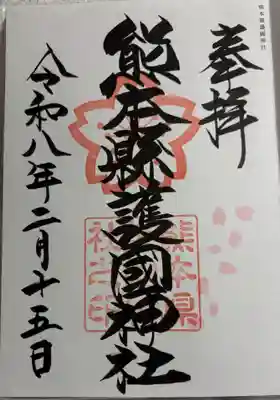 熊本縣護國神社
奉拝
熊本縣護國神社
熊本県
神社印
令和八年二月十五日